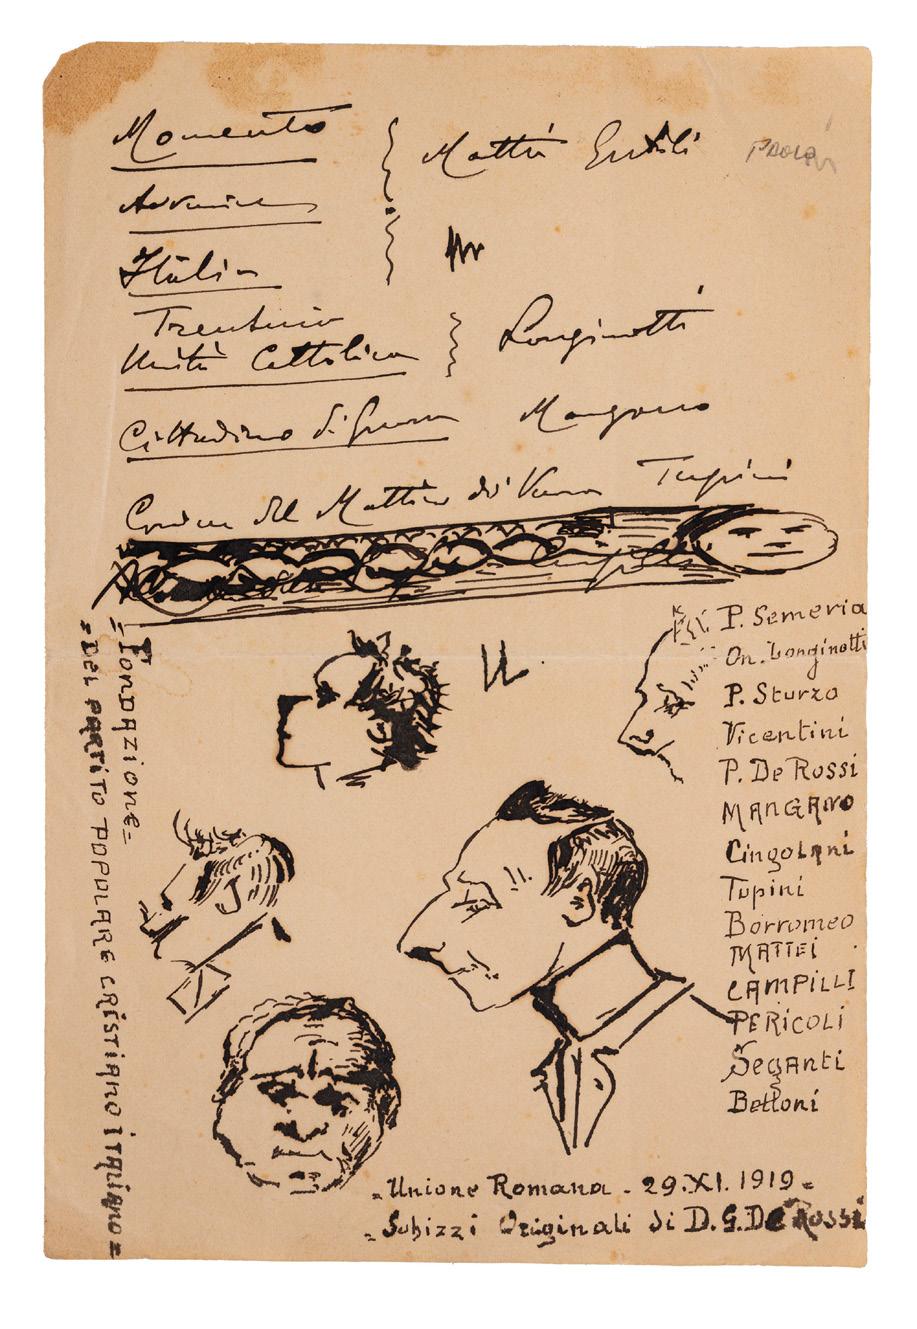 Momento
Mattei Gentili
Italia
Trentino
Unità Cattolica
Longinotti
Cittadino di Genova
Mangano
del Mattino di
Tupini
P. Semeria
On. Longinotti
P. Sturzo
Vicentini
P. De Rossi
MANGANO
Cingolani
Tupini
Borromeo
MATTEI
CAMPILLI
PERICOLI
Seganti
Bettoni
= Fondazione =
= DEL PARTITO POPOLARE CRISTIANO ITALIANO =
= Unione Romana - 29.XI.1919 =
= Schizzi Originali di D. G. De Rossi